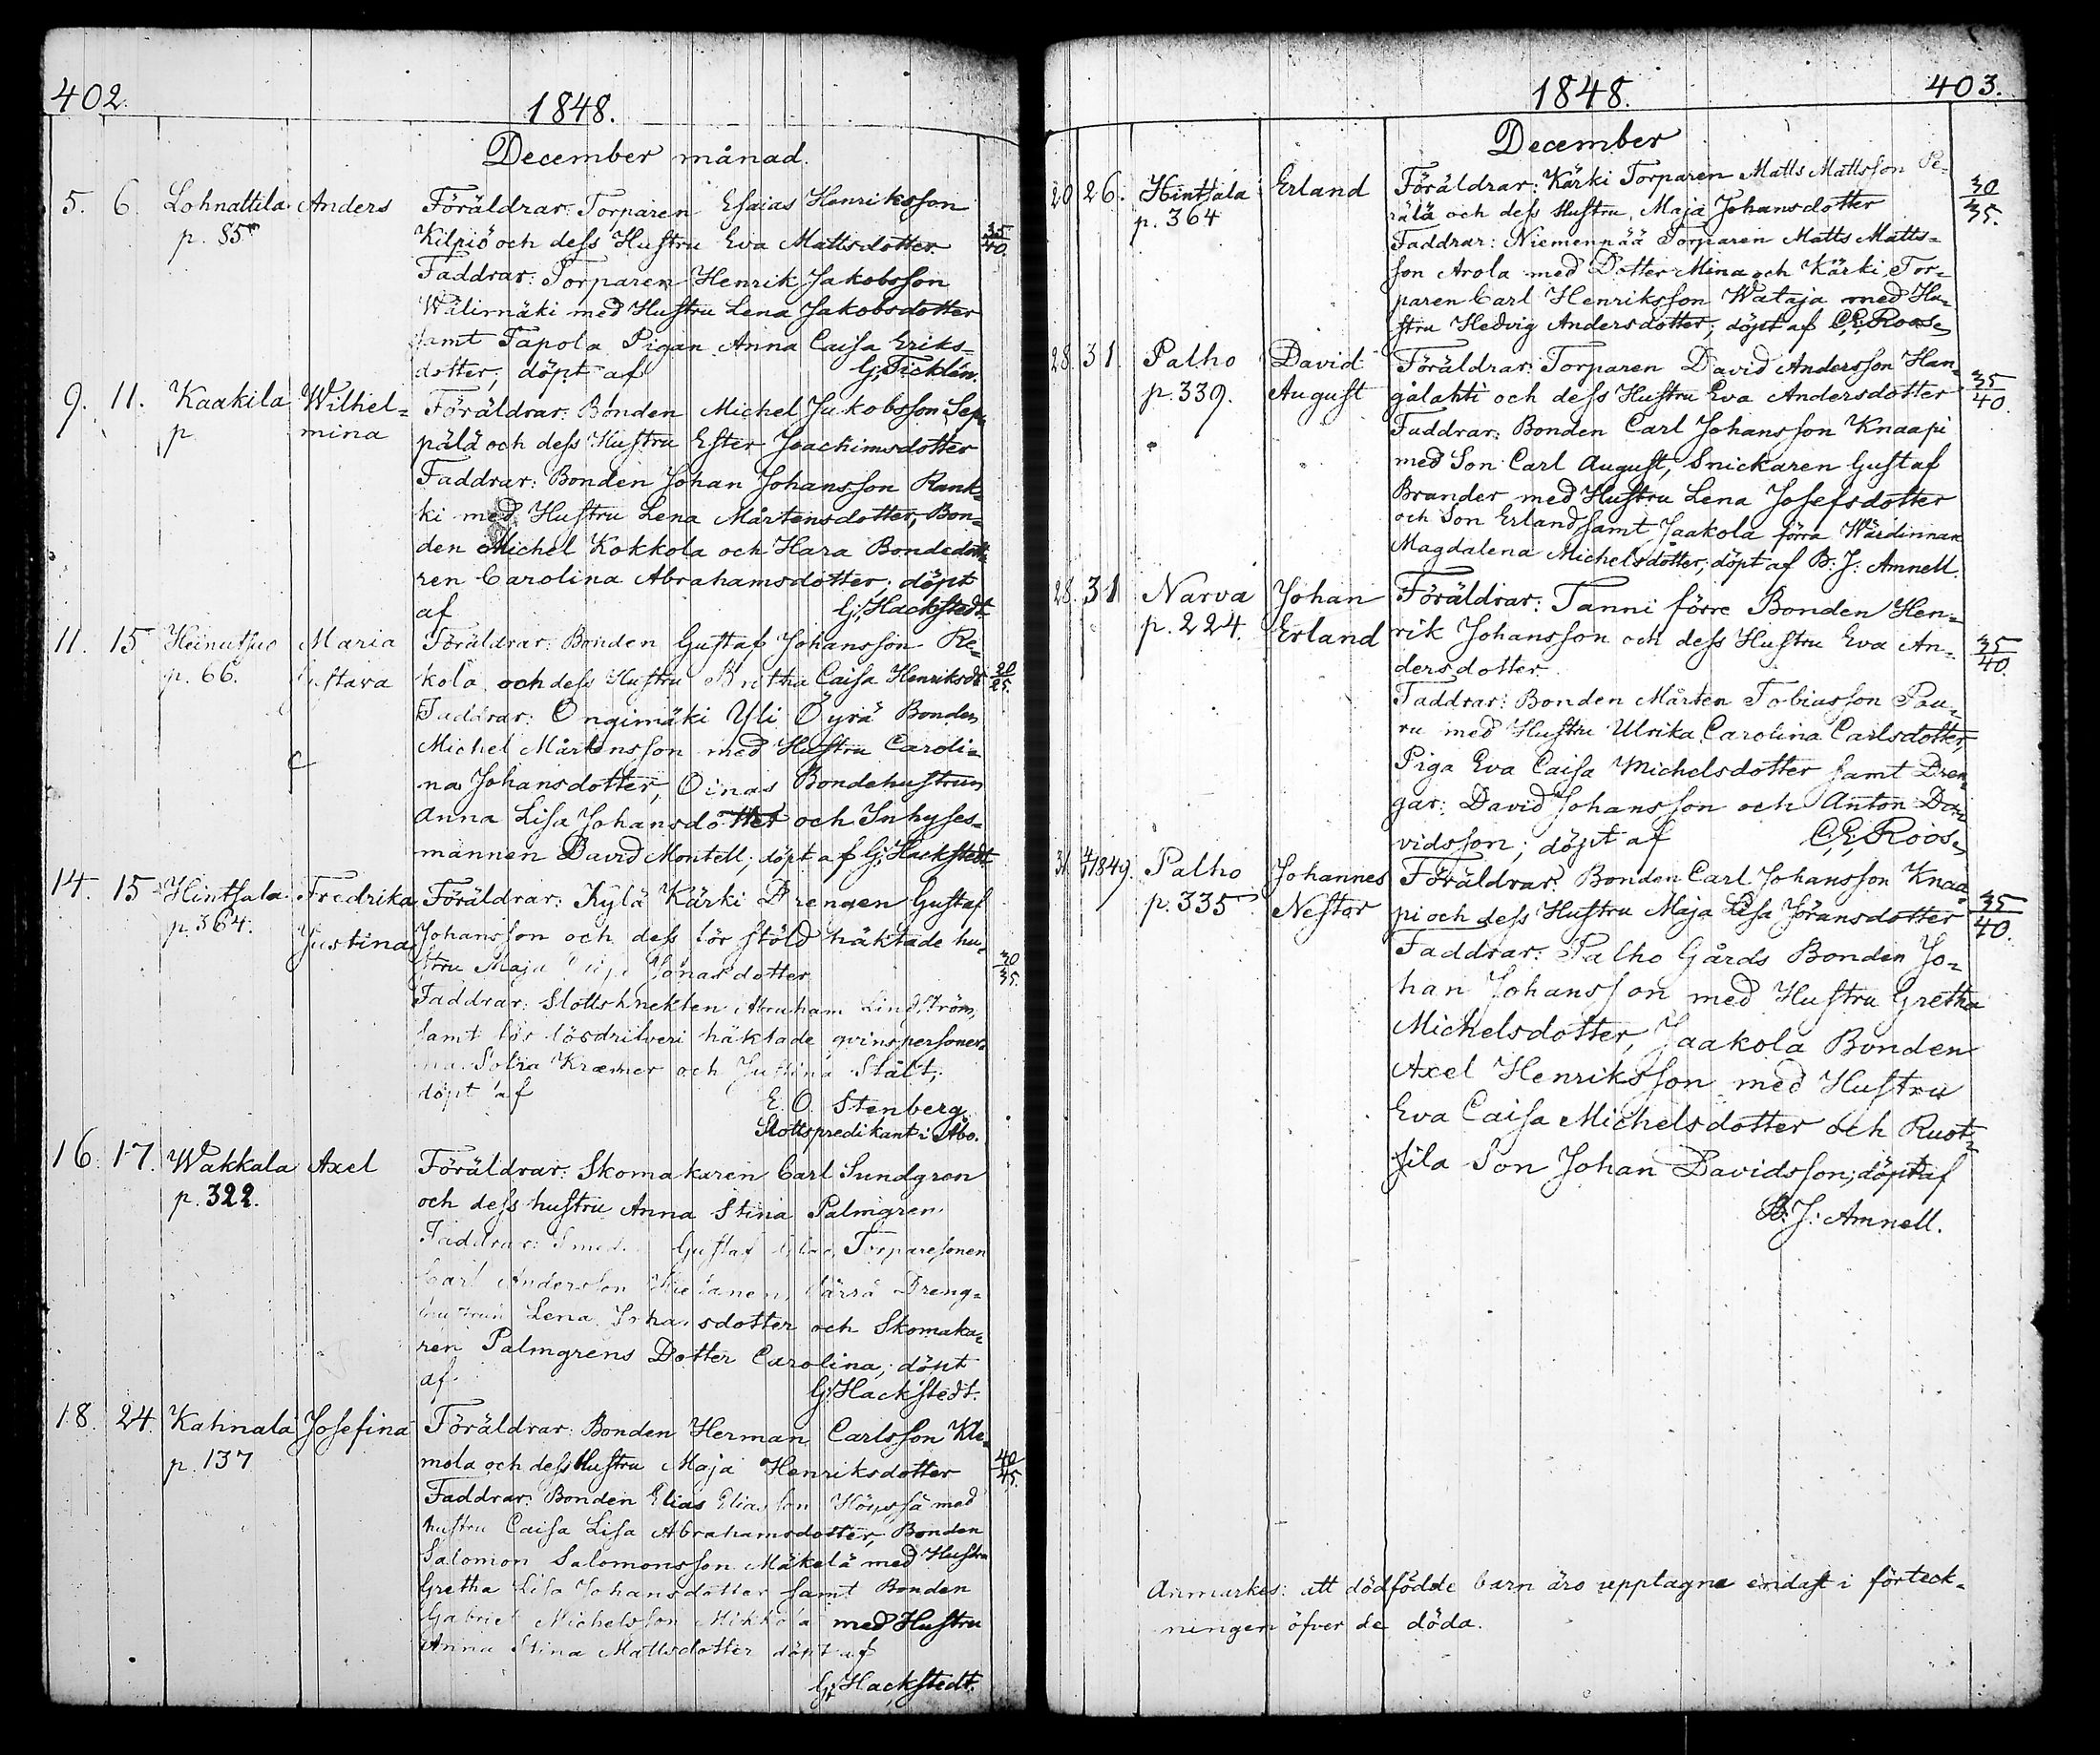 402.
1848.
December månad.
5. 6. Lohnattila Anders Föräldrar: Torparen Esaias Henriksson
p. 85 Kilpiö och dess Hustru Eva Mattsdotter. 35/40.
Faddrar: Torparen Henrik Jakobsson
Wälimäki med Hustru Lena Jakobsdotter
samt Tapola Pigan Anna Caisa Eriks-
dotter, döpt af G. Ticklén.
9. 11. Kaakila Wilhel- Föräldrar: Bonden Michel Jakobsson Sep-
p. mina pälä och dess Hustru Ester Joachimsdotter
Faddrar: Bonden Johan Johansson Rank-
ki med Hustru Lena Mårtensdotter, Bon-
den Michel Kokkola och Hara Bondedott-
ren Carolina Abrahamsdotter; döpt
af G. Hackstedt.
11. 15 Heinutsuo Maria Föräldrar: Bonden Gustaf Johansson Re-
p. 66. Gustava kola och dess Hustru Britha Caisa Henriksdr 20/25.
Faddrar: Ongimäki Yli Öyrä Bonden
Michel Mårtensson med Hustru Caroli-
na Johansdotter, Oinas Bondehustrun
Anna Lisa Johansdotter och Inhyses-
mannen David Montell; döpt af G. Hackstedt.
14. 15 Hintsala Fredrika Föräldrar: Kylä Kärki Drengen Gustaf
p. 364. Justina Johansson och dess för stöld häktade hu-
stru Maja Jonasdotter 30/35.
Faddrar: Slottsknekten Abraham Lindström,
samt för lösdrifveri häktade qvinspersoner-
na Sofia Kræmer och Justina Stält;
döpt af E. O. Stenberg
Slottspredikant i Åbo.
16. 17. Wakkala Axel Föräldrar: Skomakaren Carl Sundgren
p. 322. och dess hustru Anna Stina Palmgren.
Faddrar: Gustaf Torparesonen
Carl Andersson Dreng-
hustrun Lena Johansdotter och Skomaka-
ren Palmgrens Dotter Carolina; döpt
af G. Hackstedt.
18. 24. Kahnala Josefina Föräldrar: Bonden Herman Carlsson Kle-
p. 137 mola och dess Hustru Maja Henriksdotter 40/45.
Faddrar: Bonden Elias Eliasson Höyssä med
hustru Caisa Lisa Abrahamsdotter, Bonden
Salomon Salomonsson Mäkelä med Hustru
Gretha Lisa Johansdotter samt Bonden
Gabriel Michelsson Mikkola med Hustru
Anna Stina Mattsdotter döpt af
G. Hackstedt.
1848. 403.
December
20 26. Hintsala Erland Föräldrar: Kärki Torparen Matts Mattsson Pe-
p. 364 rälä och dess Hustru Maja Johansdotter 30/35.
Faddrar: Niemenpää Torparen Matts Matts-
son Arola med Dotter Mina och Kärki Tor-
paren Carl Henriksson Wataja med Hu-
stru Hedvig Andersdotter; döpt af C. E. Roos.
28. 31. Palho David Föräldrar: Torparen David Andersson Han-
p. 339. August gålahti och dess Hustru Eva Andersdotter 35/40.
Faddrar: Bonden Carl Johansson Knaapi
med Son Carl August, Snickaren Gustaf
Brander med Hustru Lena Josefsdotter
och Son Erland samt Jaakola förra Wärdinnan
Magdalena Michelsdotter; döpt af B: J: Amnell.
28. 31 Narva Johan Föräldrar: Tanni förre Bonden Hen-
p. 224. Erland rik Johansson och dess Hustru Eva An- 35/40.
dersdotter.
Faddrar: Bonden Mårten Tobiasson Pau-
ru med Hustru Ulrika Carolina Carlsdotter
Piga Eva Caisa Michelsdotter samt Dren-
gar: David Johansson och Anton Da-
vidsson; döpt af C. E. Roos.
31. 4/1 1849. Palho Johannes Föräldrar: Bonden Carl Johansson Knaa-
p. 335 Nestor pi och dess Hustru Maja Lisa Jöransdotter 35/40.
Faddrar: Palho Gårds Bonden Jo-
han Johansson med Hustru Gretha
Michelsdotter, Jaakola Bonden
Axel Henriksson med Hustru
Eva Caisa Michelsdotter och Ruot-
sila Son Johan Davidsson; döpt af
B: J: Amnell.
Anmärkes: att dödfödde barn äro upptagne endast i förteck-
ningen öfver de döda.